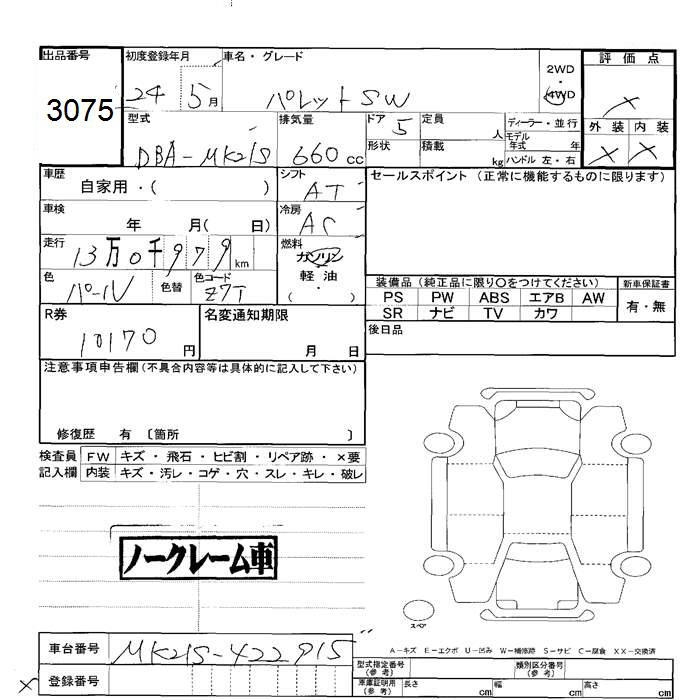 出品番号 初度登録年月 車名・グレード 2WD 評価点
3075 24 5月 パレットSW ・ 4WD ×
型式 排気量 ドア 定員 ディーラー・並行 外装 内装
DBA-MK21S 660cc 5 人 モデル年式 年 × ×
形状 積載 kg ハンドル 左・右
車歴 シフト セールスポイント (正常に機能するものに限ります)
自家用・( ) AT
車検 冷房
年 月( 日) AC
走行 燃料
13万0千979km ガソリン
軽油
・( )
色 色替 色コード
パール Z7T
装備品 (純正品に限り〇をつけてください) 新車保証書
PS PW ABS エアB AW 有・無
SR ナビ TV カワ
R券 名変通知期限 後日品
10170円 月 日
注意事項申告欄(不具合内容等は具体的に記入して下さい)
修復歴 有 〔箇所 〕
検査員 FW キズ・飛石・ヒビ割・リペア跡・×要
記入欄 内装 キズ・汚レ・コゲ・穴・スレ・キレ・破レ
ノークレーム車
スペア
A-キズ E-エクボ U-凹み W-補修跡 S-サビ C-腐食 XX-交換済
車台番号 MK21S-422915
× 登録番号
型式指定番号(参考) 類別区分番号(参考)
車庫証明用(参考) 長さ cm 幅 cm 高さ cm